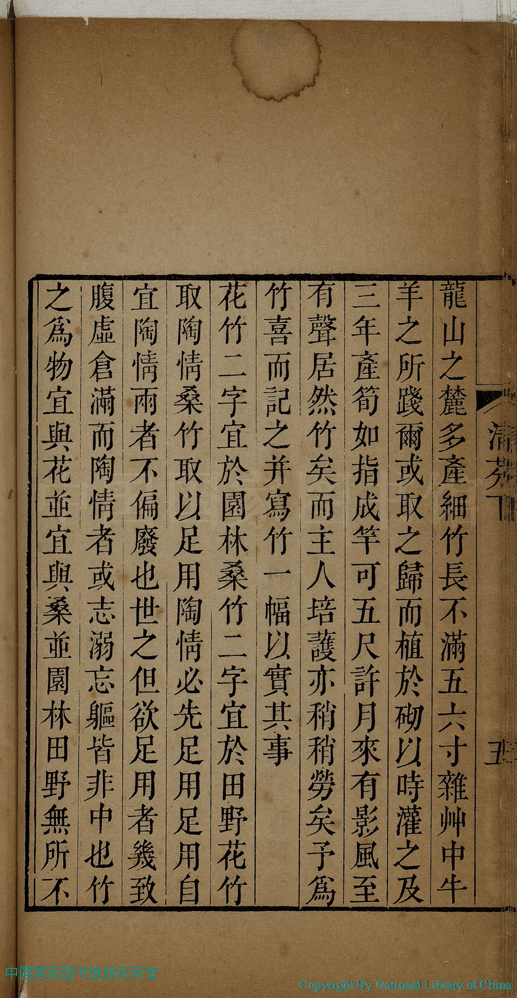 龍山之麓多產細竹長不滿五六寸雜艸中牛
羊之所踐爾或取之歸而植於砌以時灌之及
三年產筍如指成竿可五尺許月來有影風至
有聲居然竹矣而主人培護亦稍稍勞矣予爲
竹喜而記之并寫竹一幅以實其事
花竹二字宜於園林桑竹二字宜於田野花竹
取陶情桑竹取以足用陶情必先足用足用自
宜陶情兩者不偏廢也世之但欲足用者幾致
腹虛倉滿而陶情者或志溺忘軀皆非中也竹
之爲物宜與花並宜與桑並園林田野無所不
Copyright By National Library of China